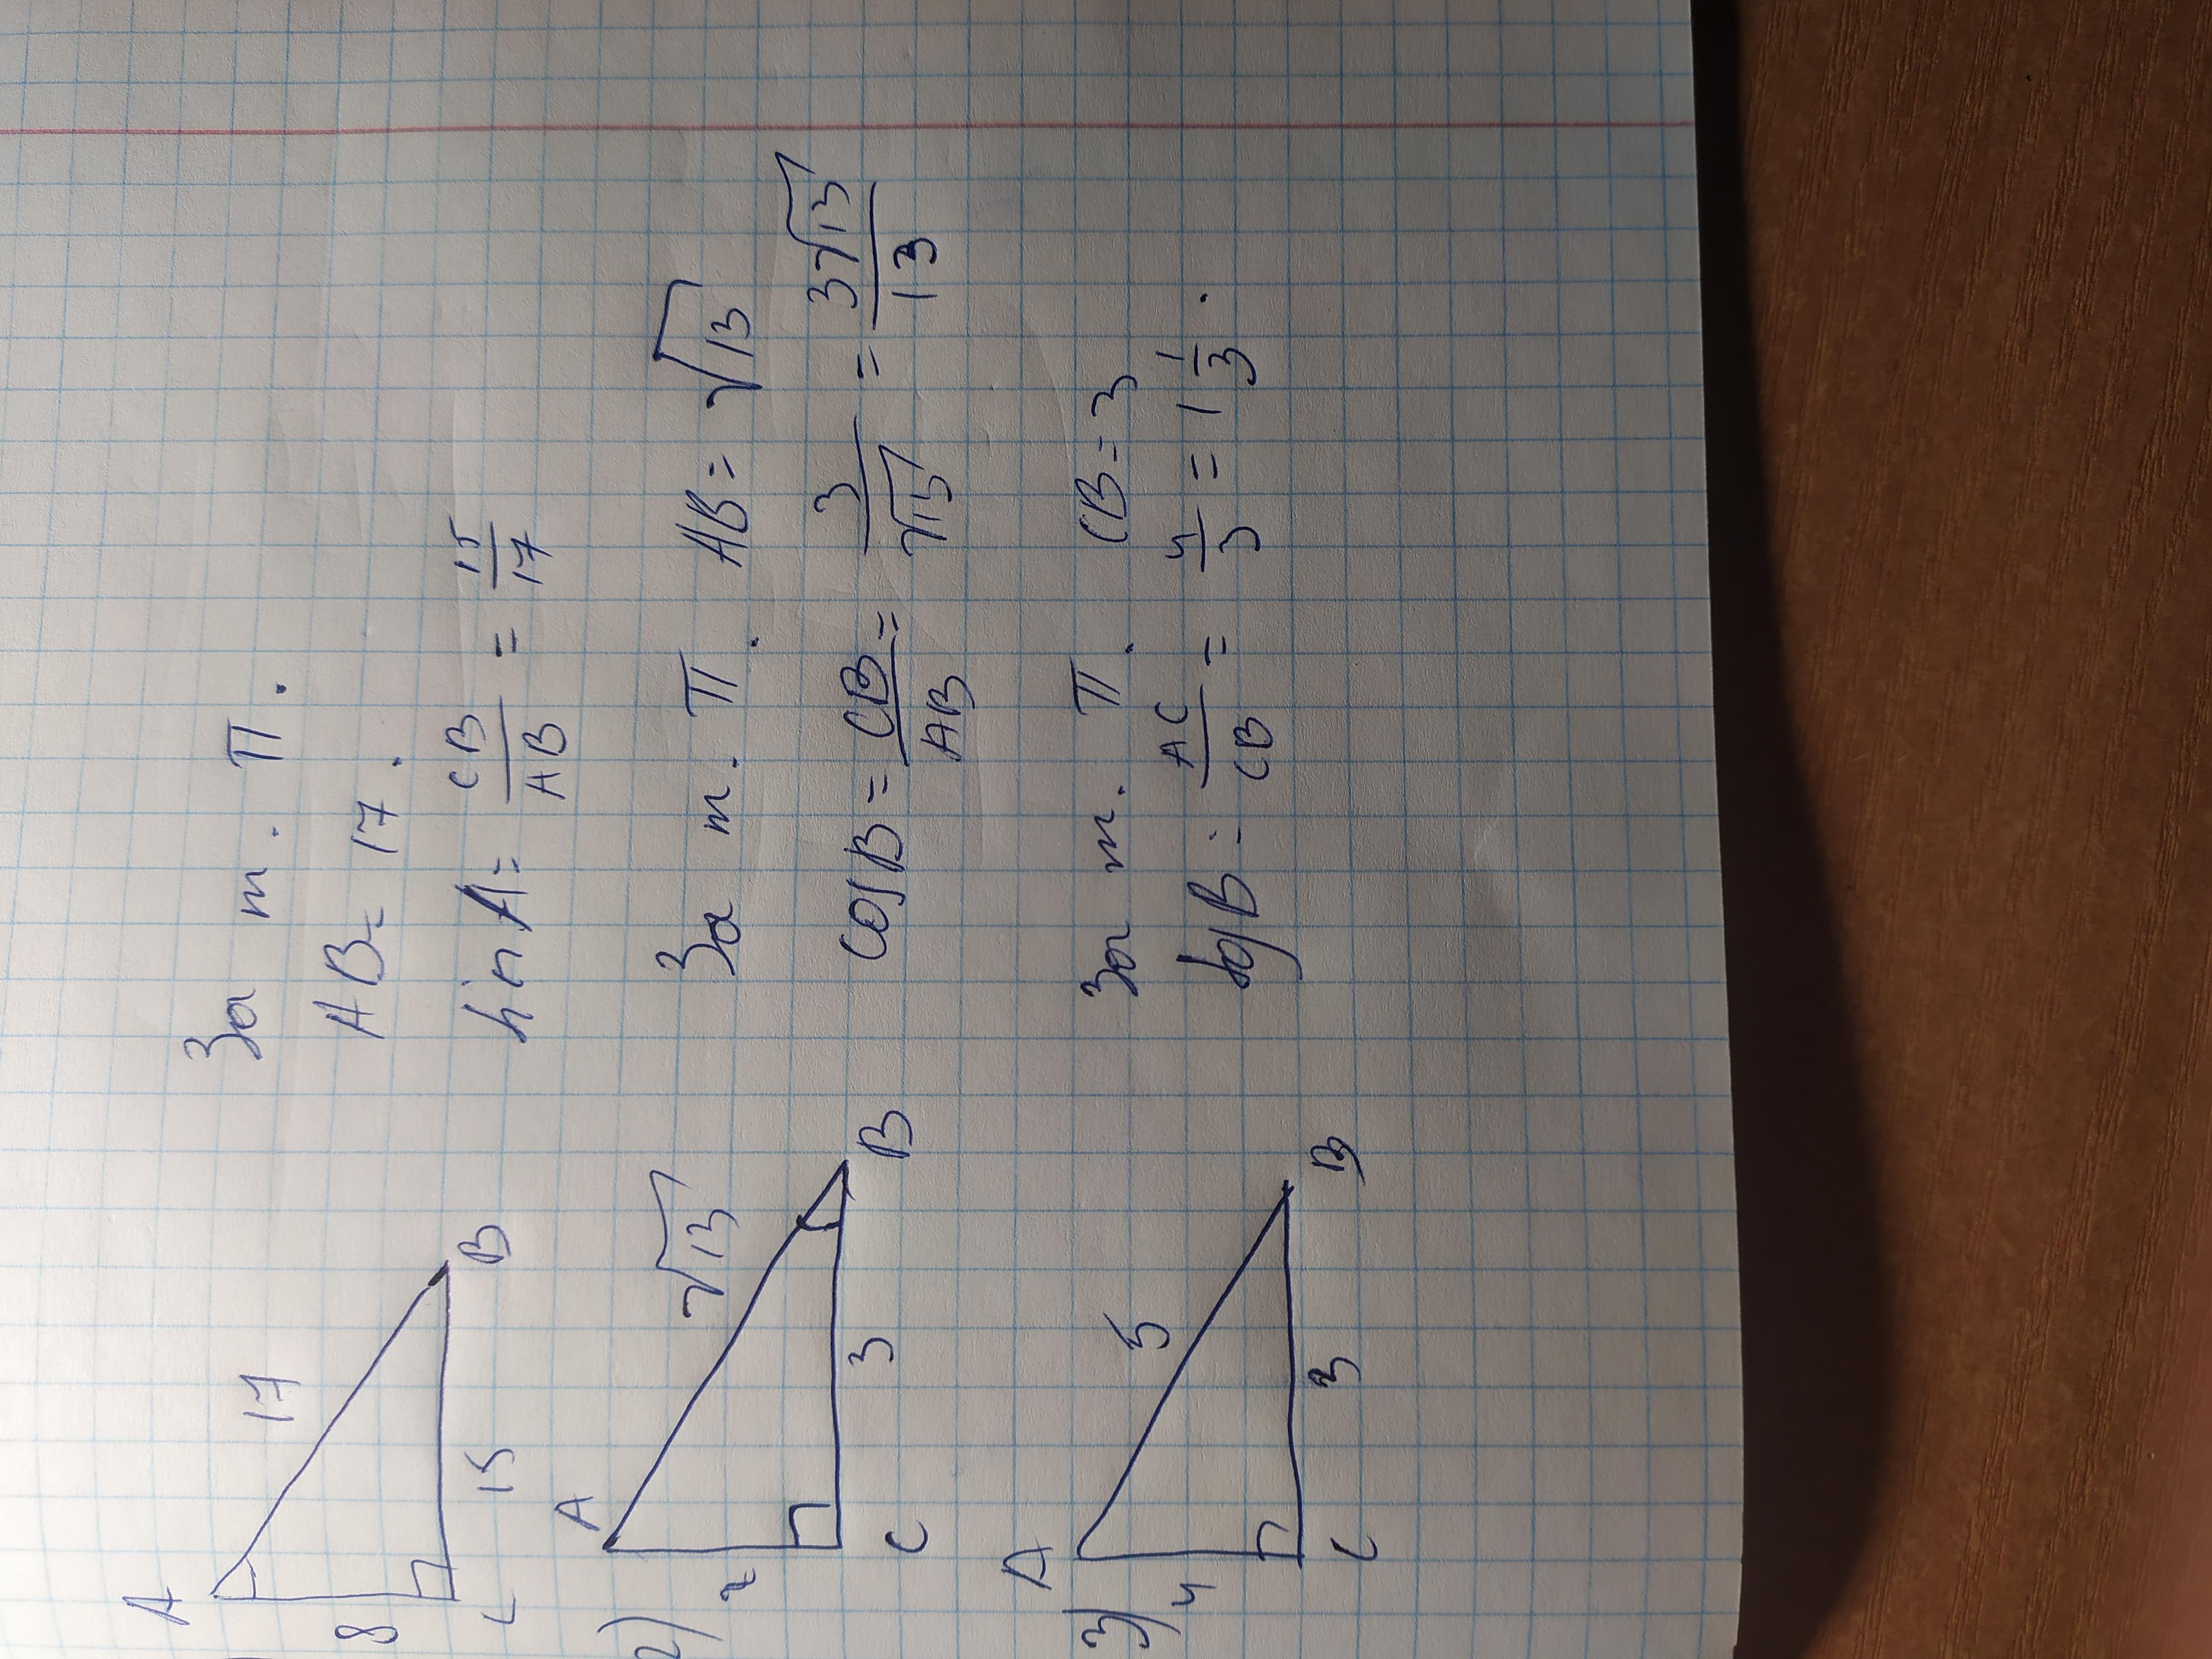 A
17
8
15
C
B
За т. П.
AB = 17.
sin A = CB/AB = 15/17
2)
A
√13
2
3
C
B
За т. П. AB = √13
cos B = CB/AB = 3/√13 = 3√13/13
3)
A
5
4
3
C
B
За т. П. CB = 3
tg B = AC/CB = 4/3 = 1 1/3.